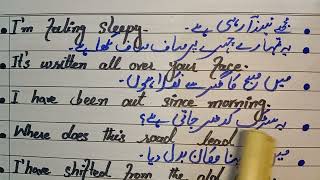 I'm feeling sleepy.
مجھے نیند آ رہی ہے۔
It's written all over your face.
یہ تمہارے چہرے پر صاف صاف لکھا ہے۔
I have been out since morning.
میں صبح کا گھر سے نکلا ہوں۔
Where does this road lead
یہ سڑک کدھر جاتی ہے؟
I have shifted from the old
میں مکان بدل دیا۔